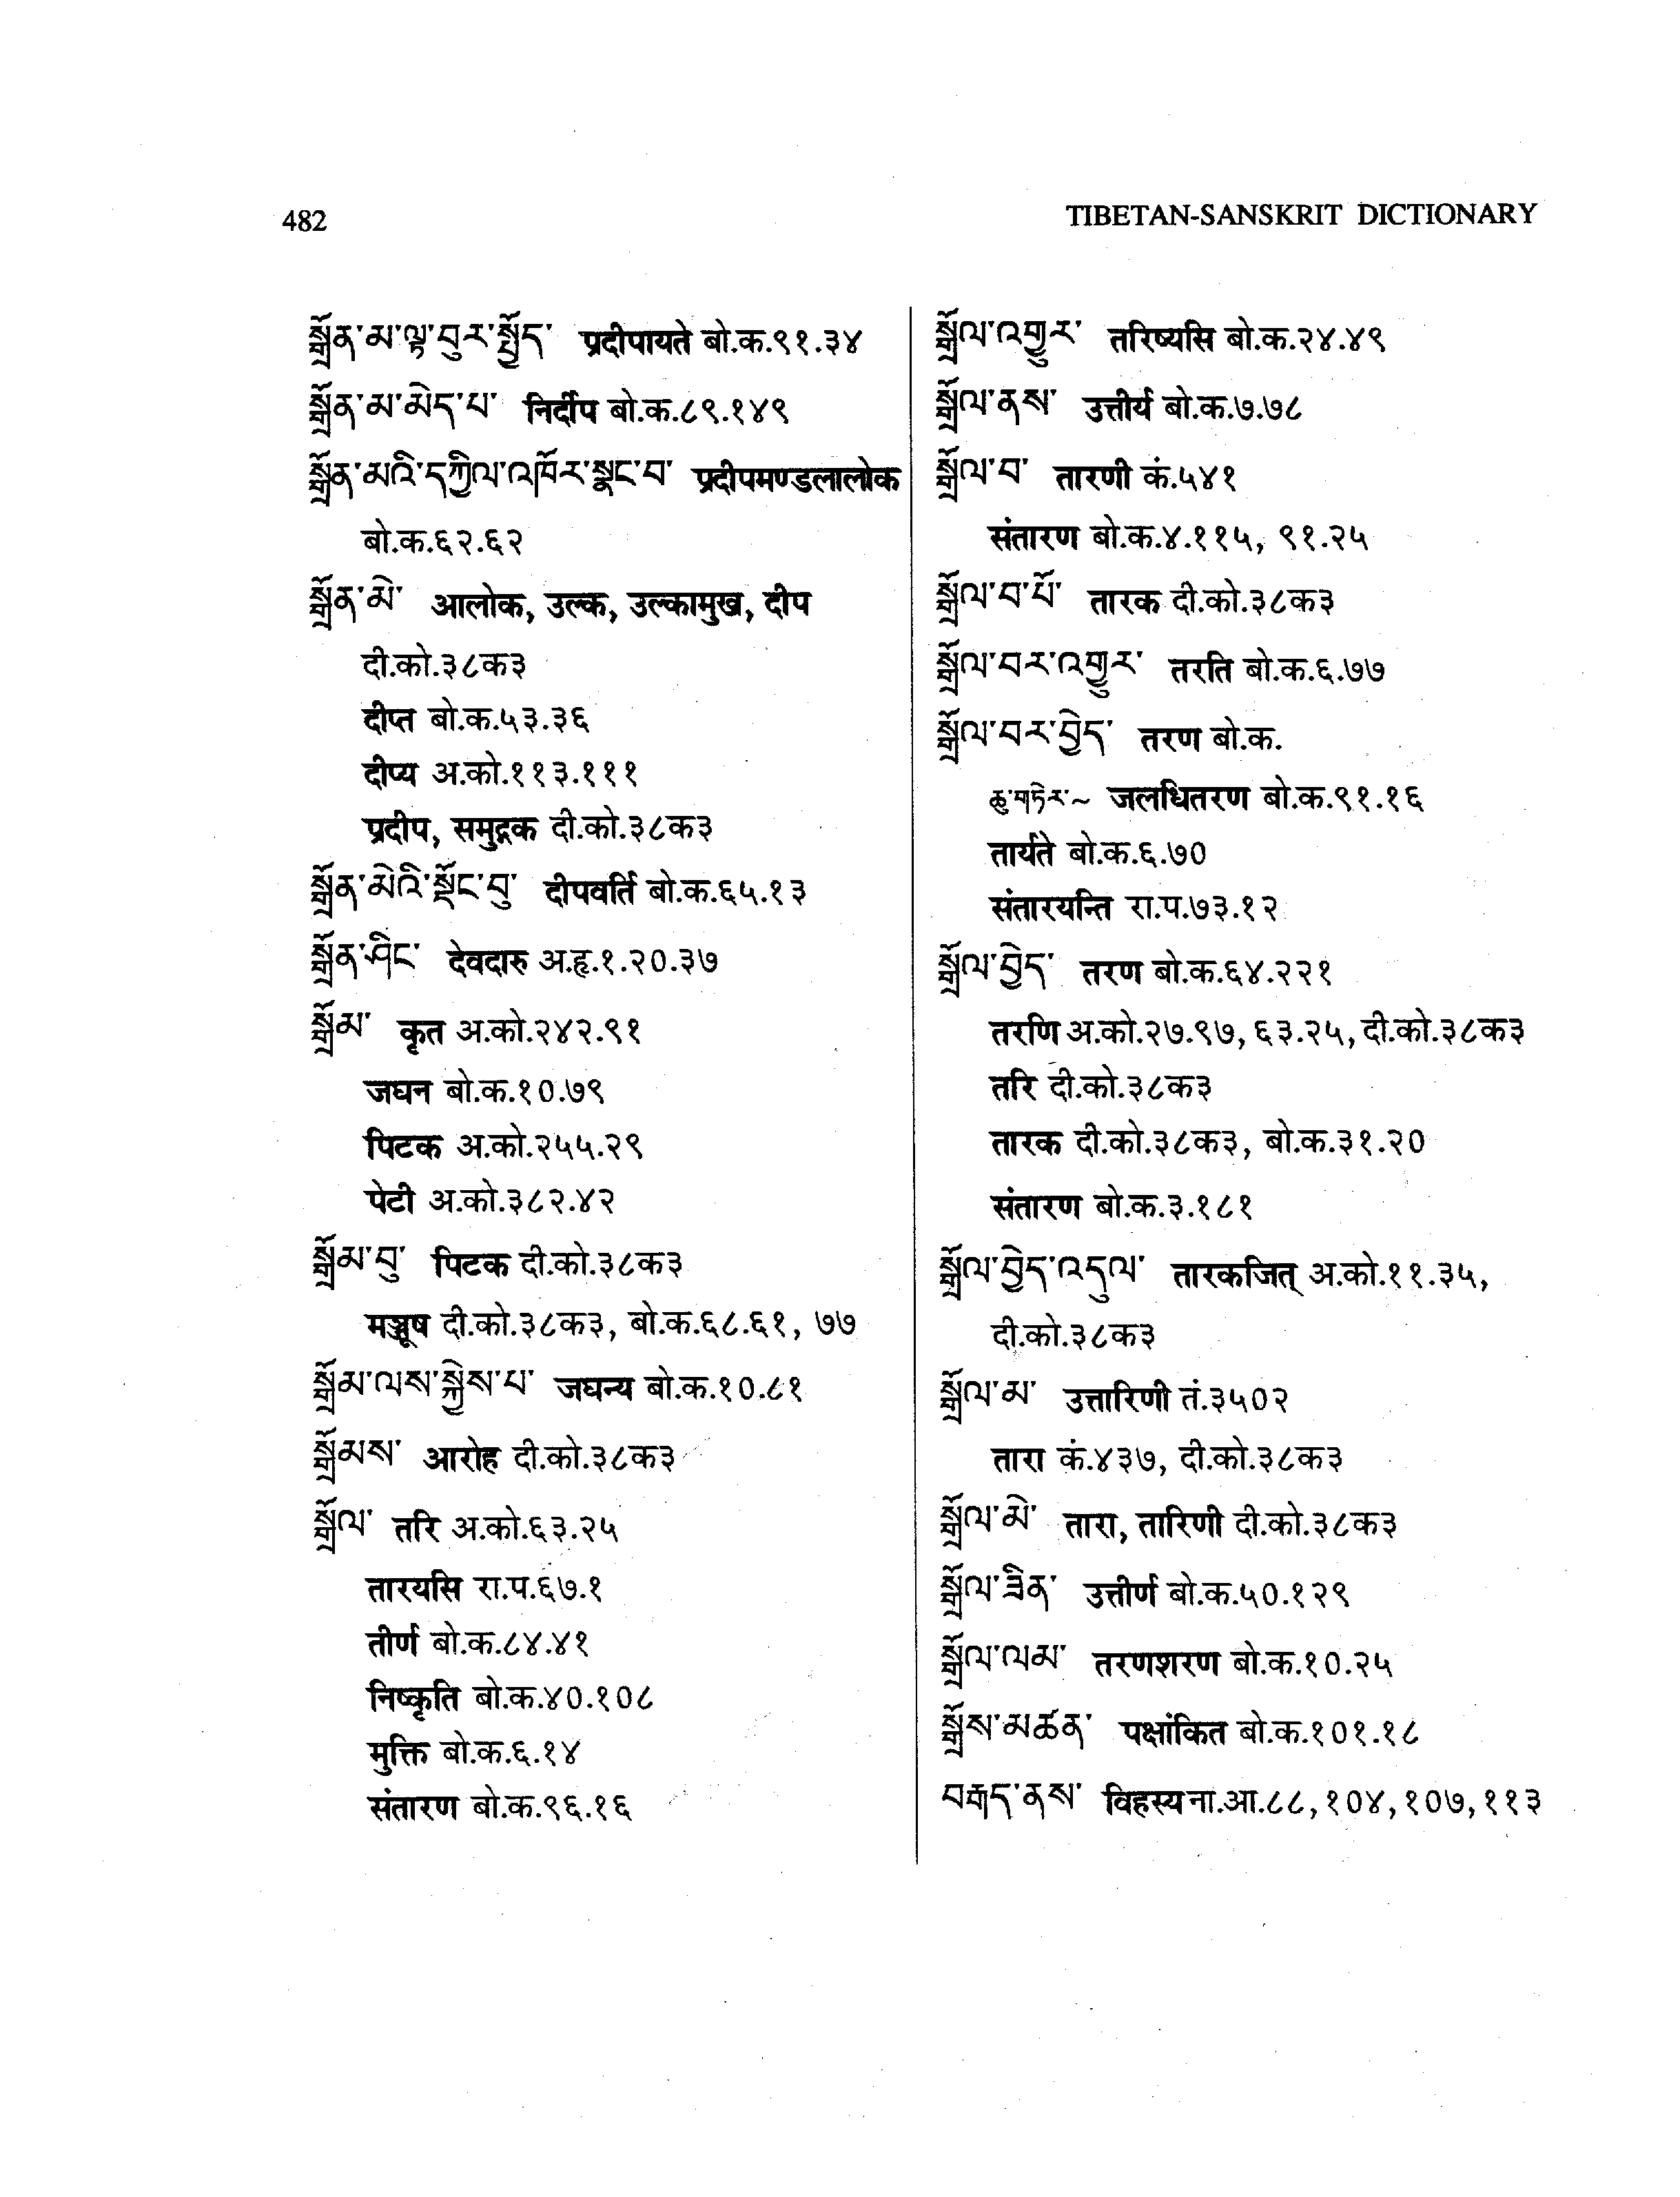 482
TIBETAN-SANSKRIT DICTIONARY
སྒྲོན་མ་ལྟ་བུར་སྤྱོད་ प्रदीपायते बो.क.९१.३४
སྒྲོན་མ་མེད་པ་ निर्दीप बो.क.८९.१४९
སྒྲོན་མའི་དཀྱིལ་འཁོར་སྣང་བ་ प्रदीपमण्डलालोक
बो.क.६२.६२
སྒྲོན་མེ་ आलोक, उल्क, उल्कामुख, दीप
दी.को.३८क३
दीप्त बो.क.५३.३६
दीप्य अ.को.११३.१११
प्रदीप, समुद्गक दी.को.३८क३
སྒྲོན་མེའི་སྡོང་བུ་ दीपवर्ति बो.क.६५.१३
སྒྲོན་ཤིང་ देवदारु अ.हृ.१.२०.३७
སྒྲོམ་ कृत अ.को.२४२.९१
जघन बो.क.१०.७९
पिटक अ.को.२५५.२९
पेटी अ.को.३८२.४२
སྒྲོམ་བུ་ पिटक दी.को.३८क३
मञ्जूष दी.को.३८क३, बो.क.६८.६१, ७७
སྒྲོམ་ལས་སྐྱེས་པ་ जघन्य बो.क.१०.८१
སྒྲོམས་ आरोह दी.को.३८क३
སྒྲོལ་ तरि अ.को.६३.२५
तारयसि रा.प.६७.१
तीर्ण बो.क.८४.४१
निष्कृति बो.क.४०.१०८
मुक्ति बो.क.६.१४
संतारण बो.क.९६.१६
སྒྲོལ་འགྱུར་ तरिष्यसि बो.क.२४.४९
སྒྲོལ་ནས་ उत्तीर्य बो.क.७.७८
སྒྲོལ་བ་ तारणी कं.५४१
संतारण बो.क.४.११५, ९१.२५
སྒྲོལ་བ་པོ་ तारक दी.को.३८क३
སྒྲོལ་བར་འགྱུར་ तरति बो.क.६.७७
སྒྲོལ་བར་བྱེད་ तरण बो.क.
ཆུ་གཏེར་~ जलधितरण बो.क.९१.१६
तार्यते बो.क.६.७०
संतारयन्ति रा.प.७३.१२
སྒྲོལ་བྱེད་ तरण बो.क.६४.२२१
तरणि अ.को.२७.९७, ६३.२५, दी.को.३८क३
तरि दी.को.३८क३
तारक दी.को.३८क३, बो.क.३१.२०
संतारण बो.क.३.१८१
སྒྲོལ་བྱེད་འདུལ་ तारकजित् अ.को.११.३५,
दी.को.३८क३
སྒྲོལ་མ་ उत्तारिणी तं.३५०२
तारा कं.४३७, दी.को.३८क३
སྒྲོལ་མེ་ तारा, तारिणी दी.को.३८क३
སྒྲོལ་ཟིན་ उत्तीर्ण बो.क.५०.१२९
སྒྲོལ་ལམ་ तरणशरण बो.क.१०.२५
སྒྲོས་མཚན་ पक्षांकित बो.क.१०१.१८
བརྒད་ནས་ विहस्य ना.आ.८८, १०४, १०७, ११३